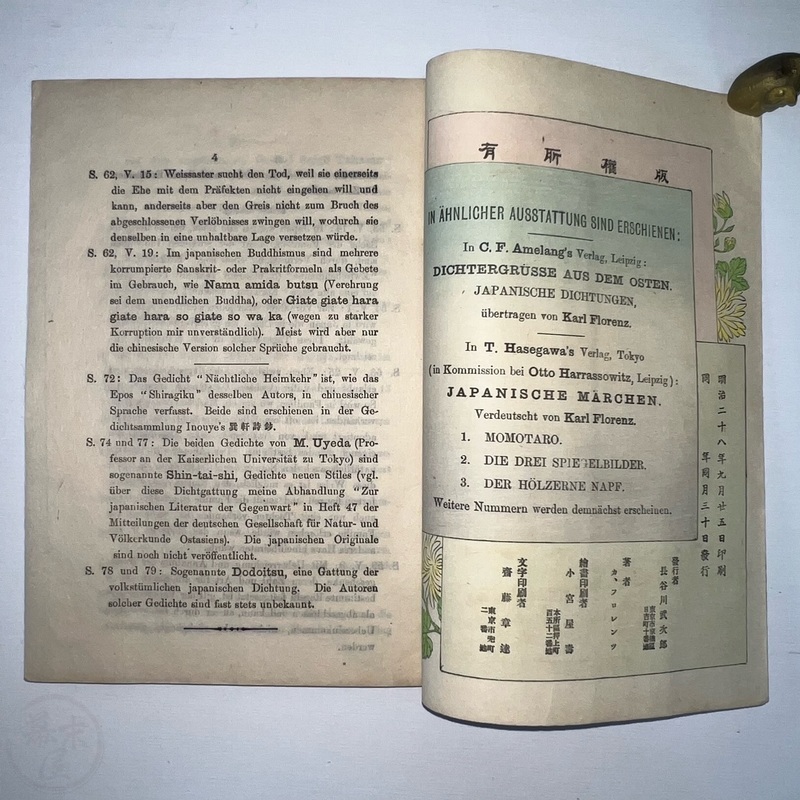 4
S. 62, V. 15: Weissaster sucht den Tod, weil sie einerseits
die Ehe mit dem Präfekten nicht eingehen will und
kann, anderseits aber den Greis nicht zum Bruch des
abgeschlossenen Verlöbnisses zwingen will, wodurch sie
denselben in eine unhaltbare Lage versetzen würde.
S. 62, V. 19: Im japanischen Buddhismus sind mehrere
korrumpierte Sanskrit- oder Prakritformeln als Gebete
im Gebrauch, wie Namu amida butsu (Verehrung
sei dem unendlichen Buddha), oder Giate giate hara
giate hara so giate so wa ka (wegen zu starker
Korruption mir unverständlich). Meist wird aber nur
die chinesische Version solcher Sprüche gebraucht.
S. 72: Das Gedicht "Nächtliche Heimkehr" ist, wie das
Epos "Shiragiku" desselben Autors, in chinesischer
Sprache verfasst. Beide sind erschienen in der Ge-
dichtsammlung Inouye's 巽軒詩鈔.
S. 74 und 77: Die beiden Gedichte von M. Uyeda (Pro-
fessor an der Kaiserlichen Universität zu Tokyo) sind
sogenannte Shin-tai-shi, Gedichte neuen Stiles (vgl.
über diese Dichtgattung meine Abhandlung "Zur
japanischen Literatur der Gegenwart" in Heft 47 der
Mitteilungen der deutschen Gesellschaft für Natur- und
Völkerkunde Ostasiens). Die japanischen Originale
sind noch nicht veröffentlicht.
S. 78 und 79: Sogenannte Dodoitsu, eine Gattung der
volkstümlichen japanischen Dichtung. Die Autoren
solcher Gedichte sind fast stets unbekannt.
有所權版
IN ÄHNLICHER AUSSTATTUNG SIND ERSCHIENEN:
In C. F. Amelang's Verlag, Leipzig:
DICHTERGRÜSSE AUS DEM OSTEN.
JAPANISCHE DICHTUNGEN,
übertragen von Karl Florenz.
In T. Hasegawa's Verlag, Tokyo
(in Kommission bei Otto Harrassowitz, Leipzig):
JAPANISCHE MÄRCHEN.
Verdeutscht von Karl Florenz.
1. MOMOTARO.
2. DIE DREI SPIEGELBILDER.
3. DER HÖLZERNE NAPF.
Weitere Nummern werden demnächst erscheinen.
明治二十八年九月廿五日印刷
同年同月三十日發行
發行者
長谷川武次郎
著者
カ、フロレンツ
繪畫印刷者
小宮屋壽
本所區押上町
百五十二番地
文字印刷者
齋藤章達